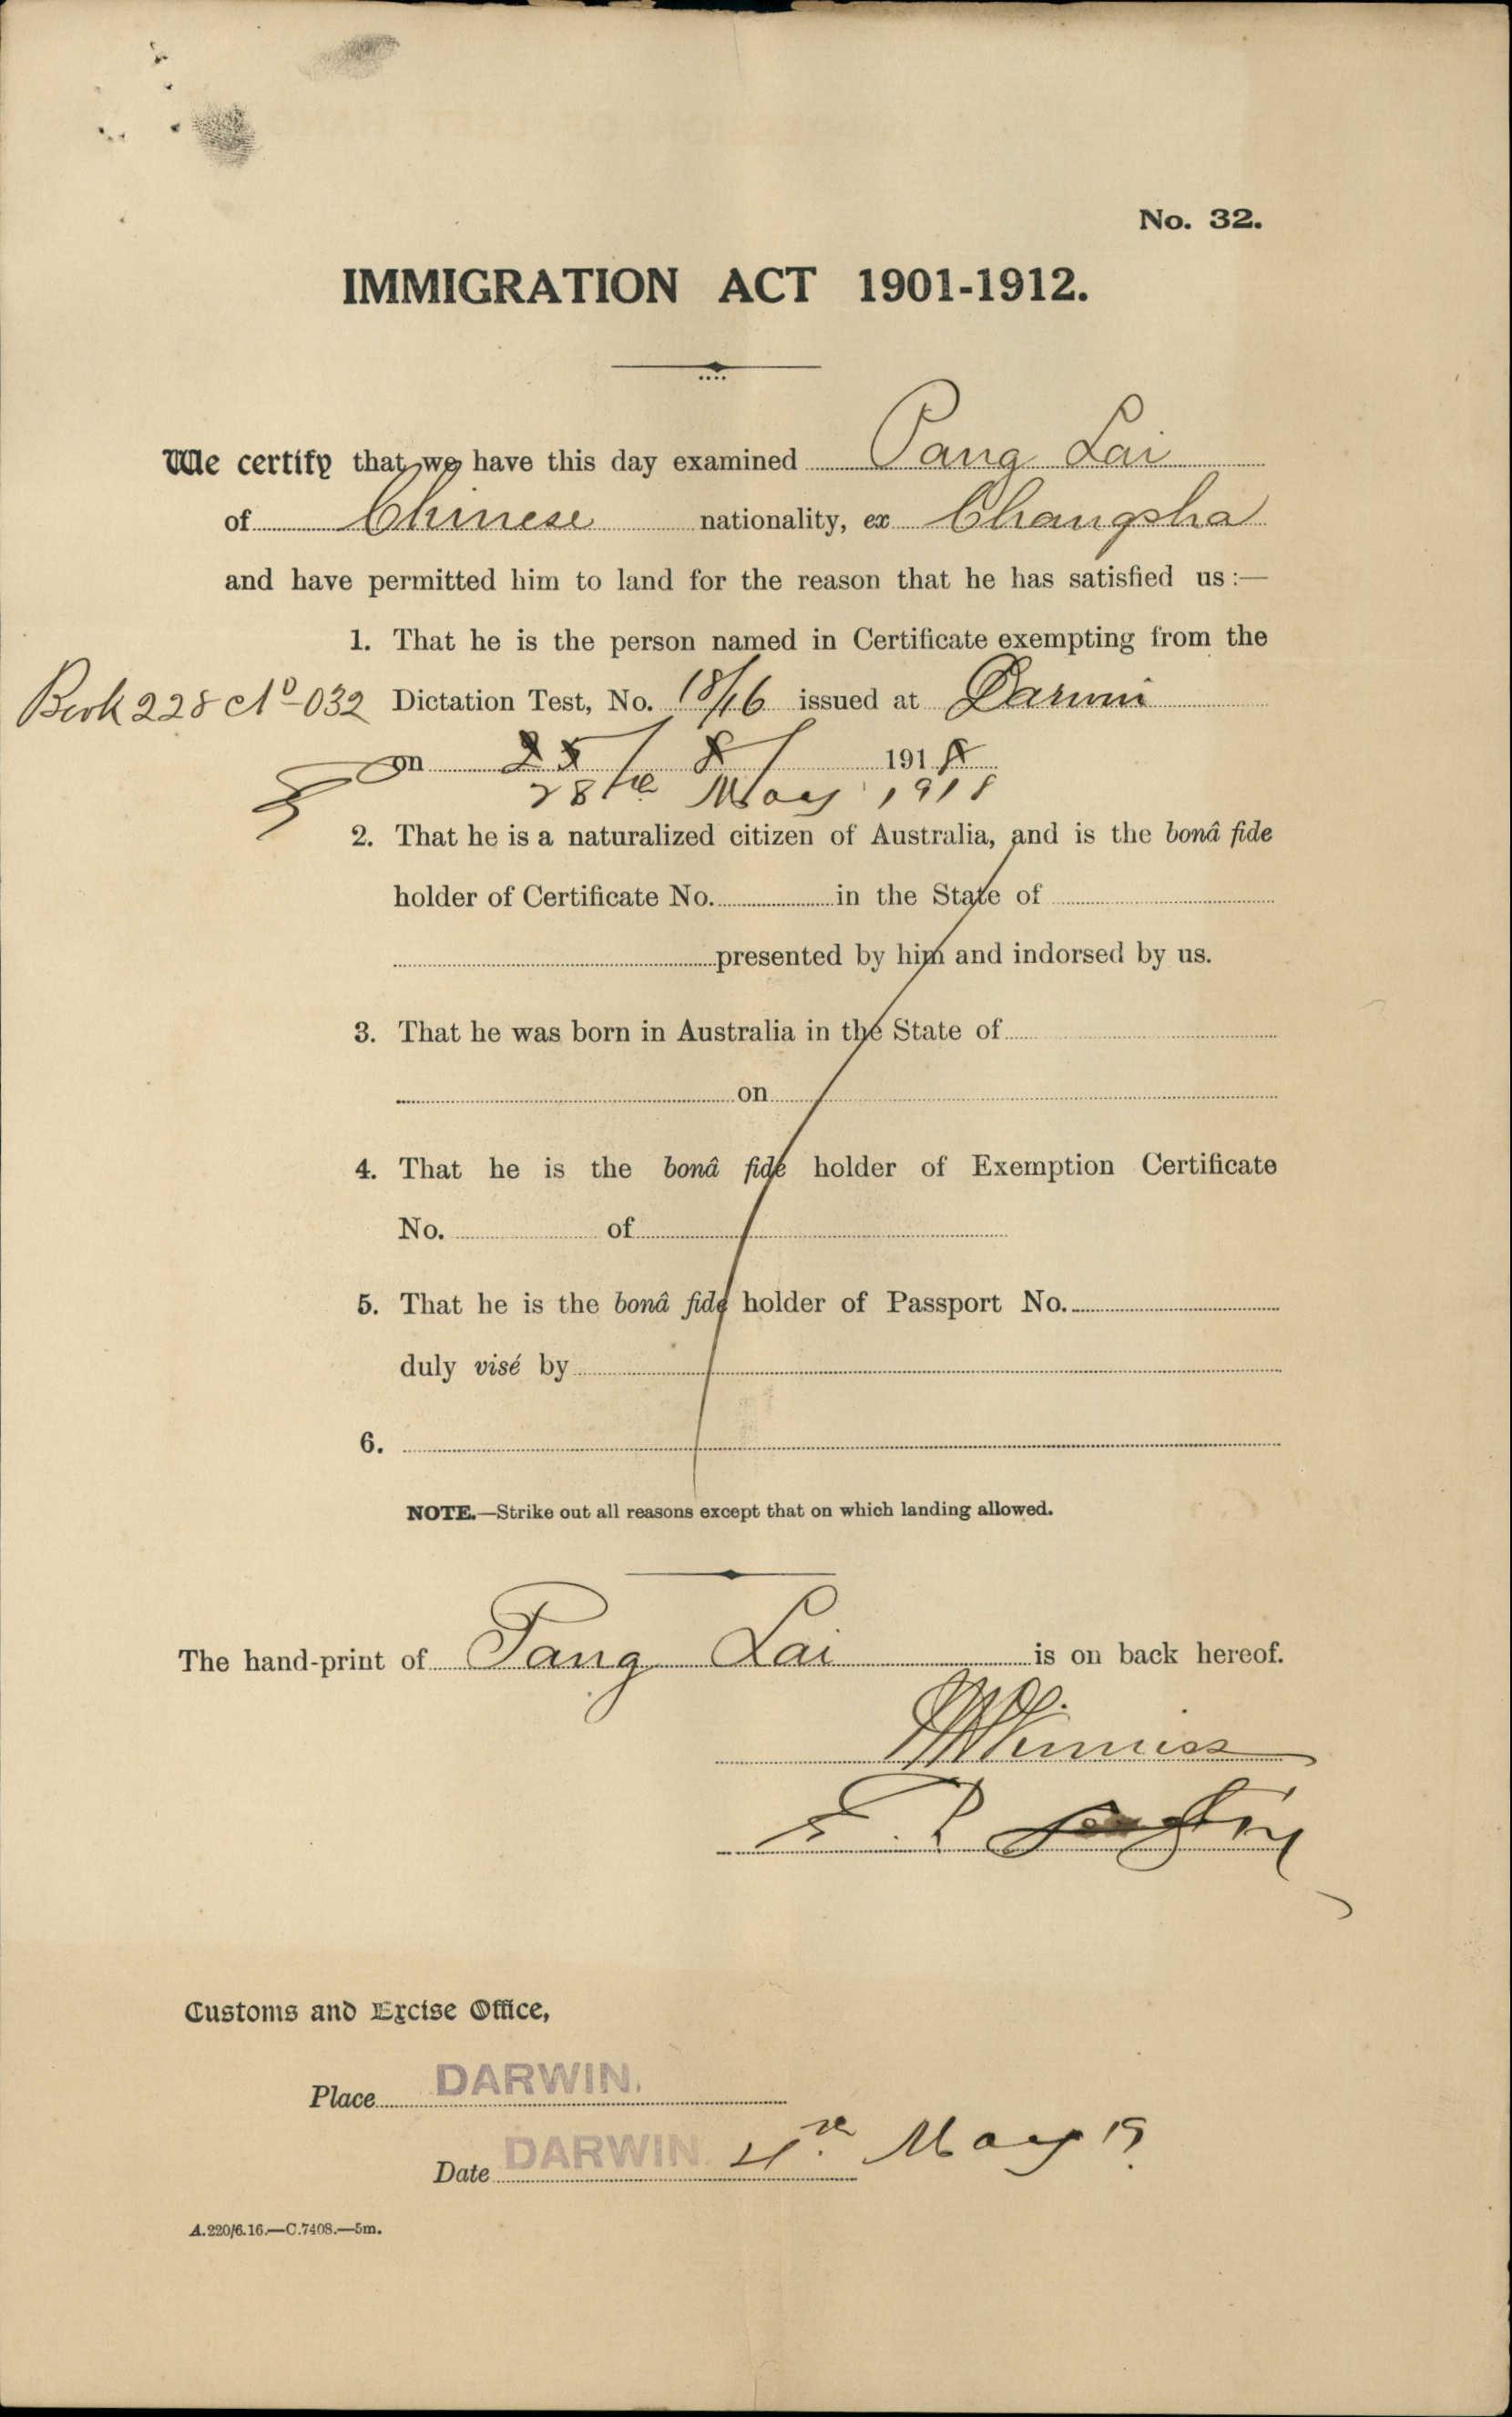 No. 32.
IMMIGRATION ACT 1901-1912.
We certify that we have this day examined Pang Lai
of Chinese nationality, ex Changsha
and have permitted him to land for the reason that he has satisfied us:—
1. That he is the person named in Certificate exempting from the
Book 228 No 032 Dictation Test, No. 18/16 issued at Darwin
on 25/8/ 191
28th May 1918
2. That he is a naturalized citizen of Australia, and is the bonâ fide
holder of Certificate No. in the State of
presented by him and indorsed by us.
3. That he was born in Australia in the State of
on
4. That he is the bonâ fide holder of Exemption Certificate
No. of
5. That he is the bonâ fide holder of Passport No.
duly visé by
6.
NOTE.—Strike out all reasons except that on which landing allowed.
The hand-print of Pang Lai is on back hereof.
Customs and Excise Office,
Place DARWIN.
Date DARWIN. 4th May 19
A.220/6.16.—C.7408.—5m.